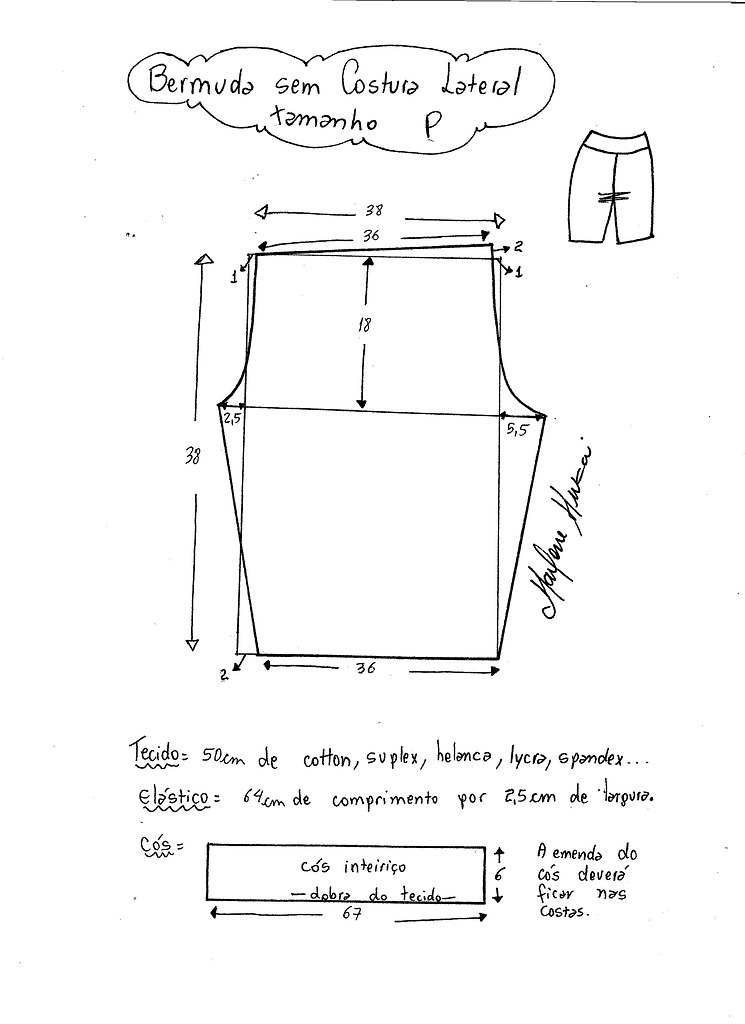 Bermuda sem Costura Lateral
tamanho P
38
36
2
1
1
18
2,5
5,5
38
Marlene Mukai
2
36
Tecido = 50cm de cotton, suplex, helanca, lycra, spandex...
Elástico = 64cm de comprimento por 2,5cm de largura.
Cós =
cós inteiriço
dobra do tecido
6
67
A emenda do
cós deverá
ficar nas
costas.